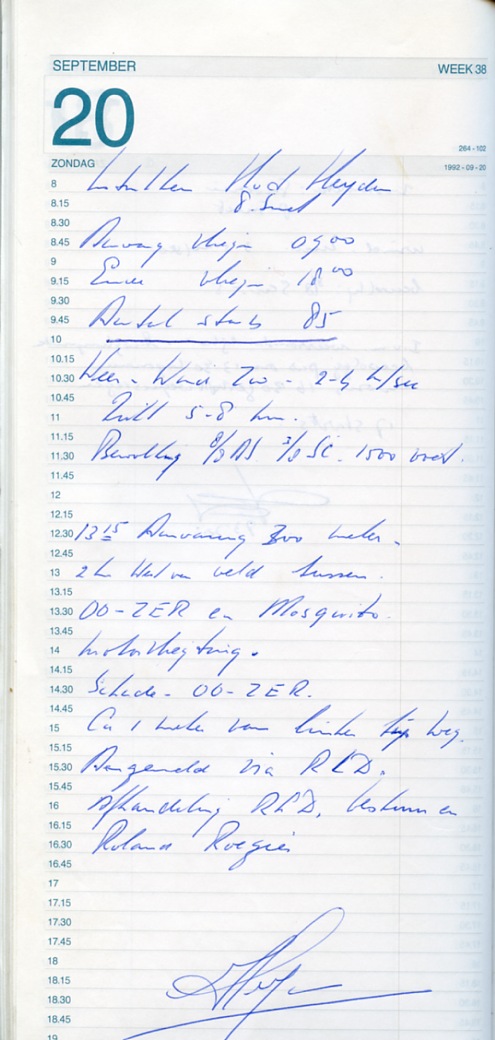 SEPTEMBER WEEK 38
20
264 - 102
ZONDAG 1992 - 09 - 20
8 v/d Heyden
8.15 B. Smet
8.30
8.45 Aanvang vliegen 09⁰⁰
9
9.15 Einde vliegen 18⁰⁰
9.30
9.45 Aantal starts 85
10
10.15
10.30 Weer - Wind ZW - 2-4 m/sec
10.45
11 Zicht 5-8 km.
11.15
11.30 Bewolking 8/8 AS 3/8 SC - 1500 voet.
11.45
12
12.15
12.30 13¹⁵ Aanvaring 300 meter -
12.45
13 2 km West van veld tussen.
13.15
13.30 OO-ZER en Mosquito.
13.45
14 motorvliegtuig.
14.15
14.30 Schade - OO-ZER.
14.45
15 Ca 1 meter van linker tip weg.
15.15
15.30 Aangemeld via RLD.
15.45
16 Afhandeling RLD, bestuur en
16.15
16.30 Roland Roegiers
16.45
17
17.15
17.30
17.45
18
18.15
18.30
18.45
19